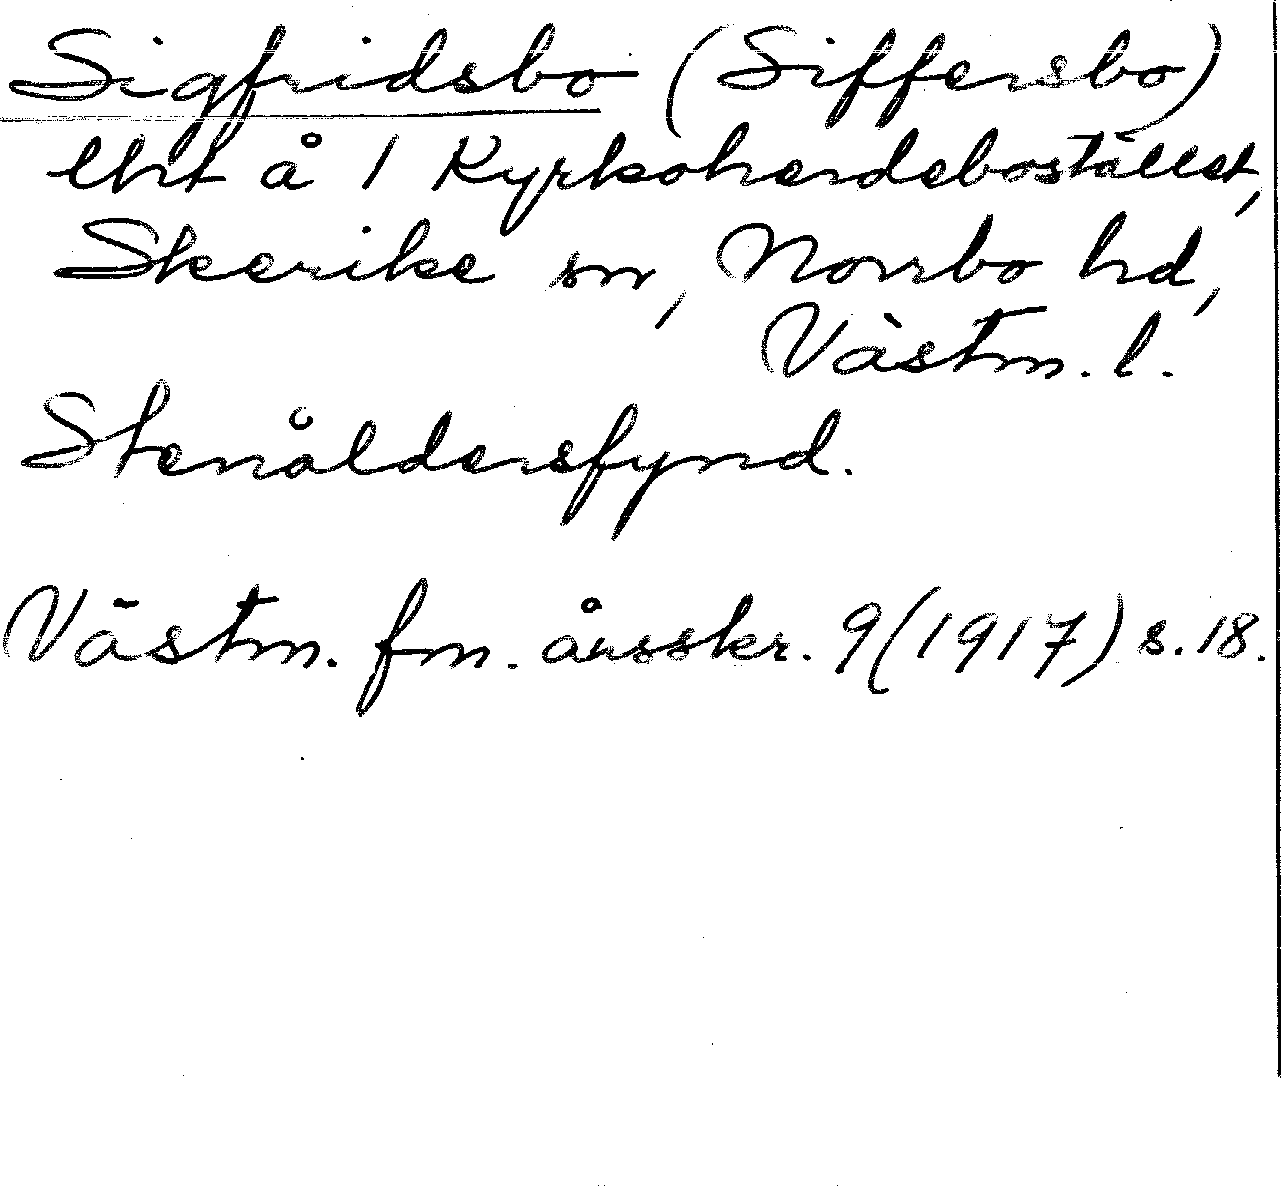 Sigfridsbo (Siffersbo)
lht å 1 Kyrkoherdebostället,
Skerike sn, Norrbo hd,
Västm. l.
Stenåldersfynd.
Västm. fm. årsskr. 9(1917) s. 18.